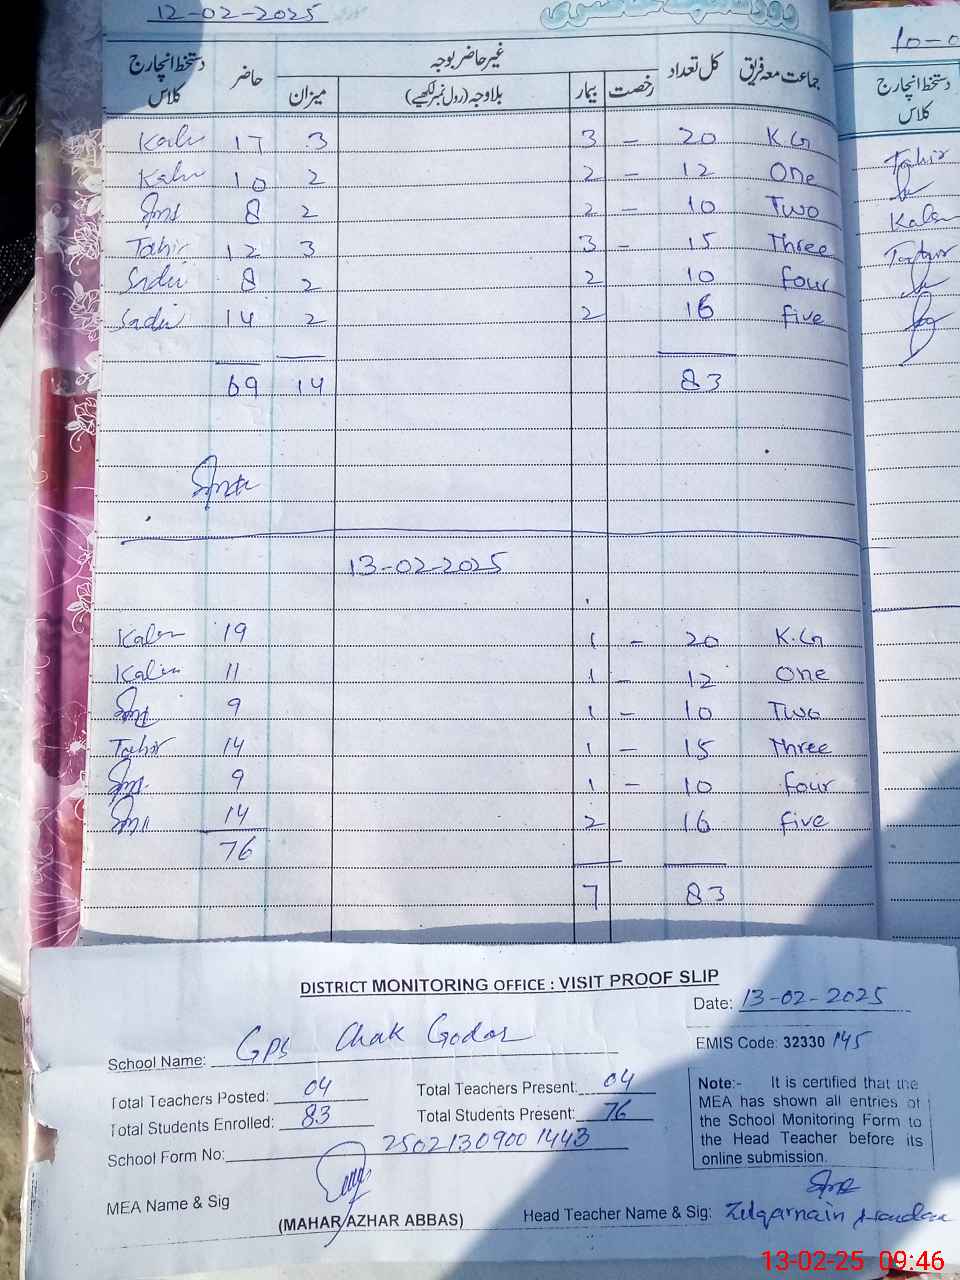 12-02-2025
روزنامچہ حاضری
10-0
دستخط انچارج کلاس حاضر میزان غیر حاضر بوجہ بلاوجہ (رول نمبر لکھیے) بیمار رخصت کل تعداد جماعت معہ فریق
دستخط انچارج کلاس
Kalm 17 3 3 - 20 K.G
Kalm 10 2 2 - 12 One
8 2 2 - 10 Two
Tahir 12 3 3 - 15 Three
Sadir 8 2 2 10 four
Sadir 14 2 2 16 five
69 14 83
Tahir
Kalm
Tahir
13-02-2025
Kalm 19 1 - 20 K.G
Kalim 11 1 - 12 One
9 1 - 10 Two
Tahir 14 1 - 15 Three
9 1 - 10 four
14 2 16 five
76
7 83
DISTRICT MONITORING OFFICE : VISIT PROOF SLIP
Date: 13-02-2025
School Name: GPS Chak Godar
EMIS Code: 32330 145
Total Teachers Posted: 04 Total Teachers Present: 04
Total Students Enrolled: 83 Total Students Present: 76
School Form No: 25021309001443
Note:- It is certified that the
MEA has shown all entries of
the School Monitoring Form to
the Head Teacher before its
online submission.
MEA Name & Sig
(MAHAR AZHAR ABBAS)
Head Teacher Name & Sig: Zulqarnain
13-02-25 09:46